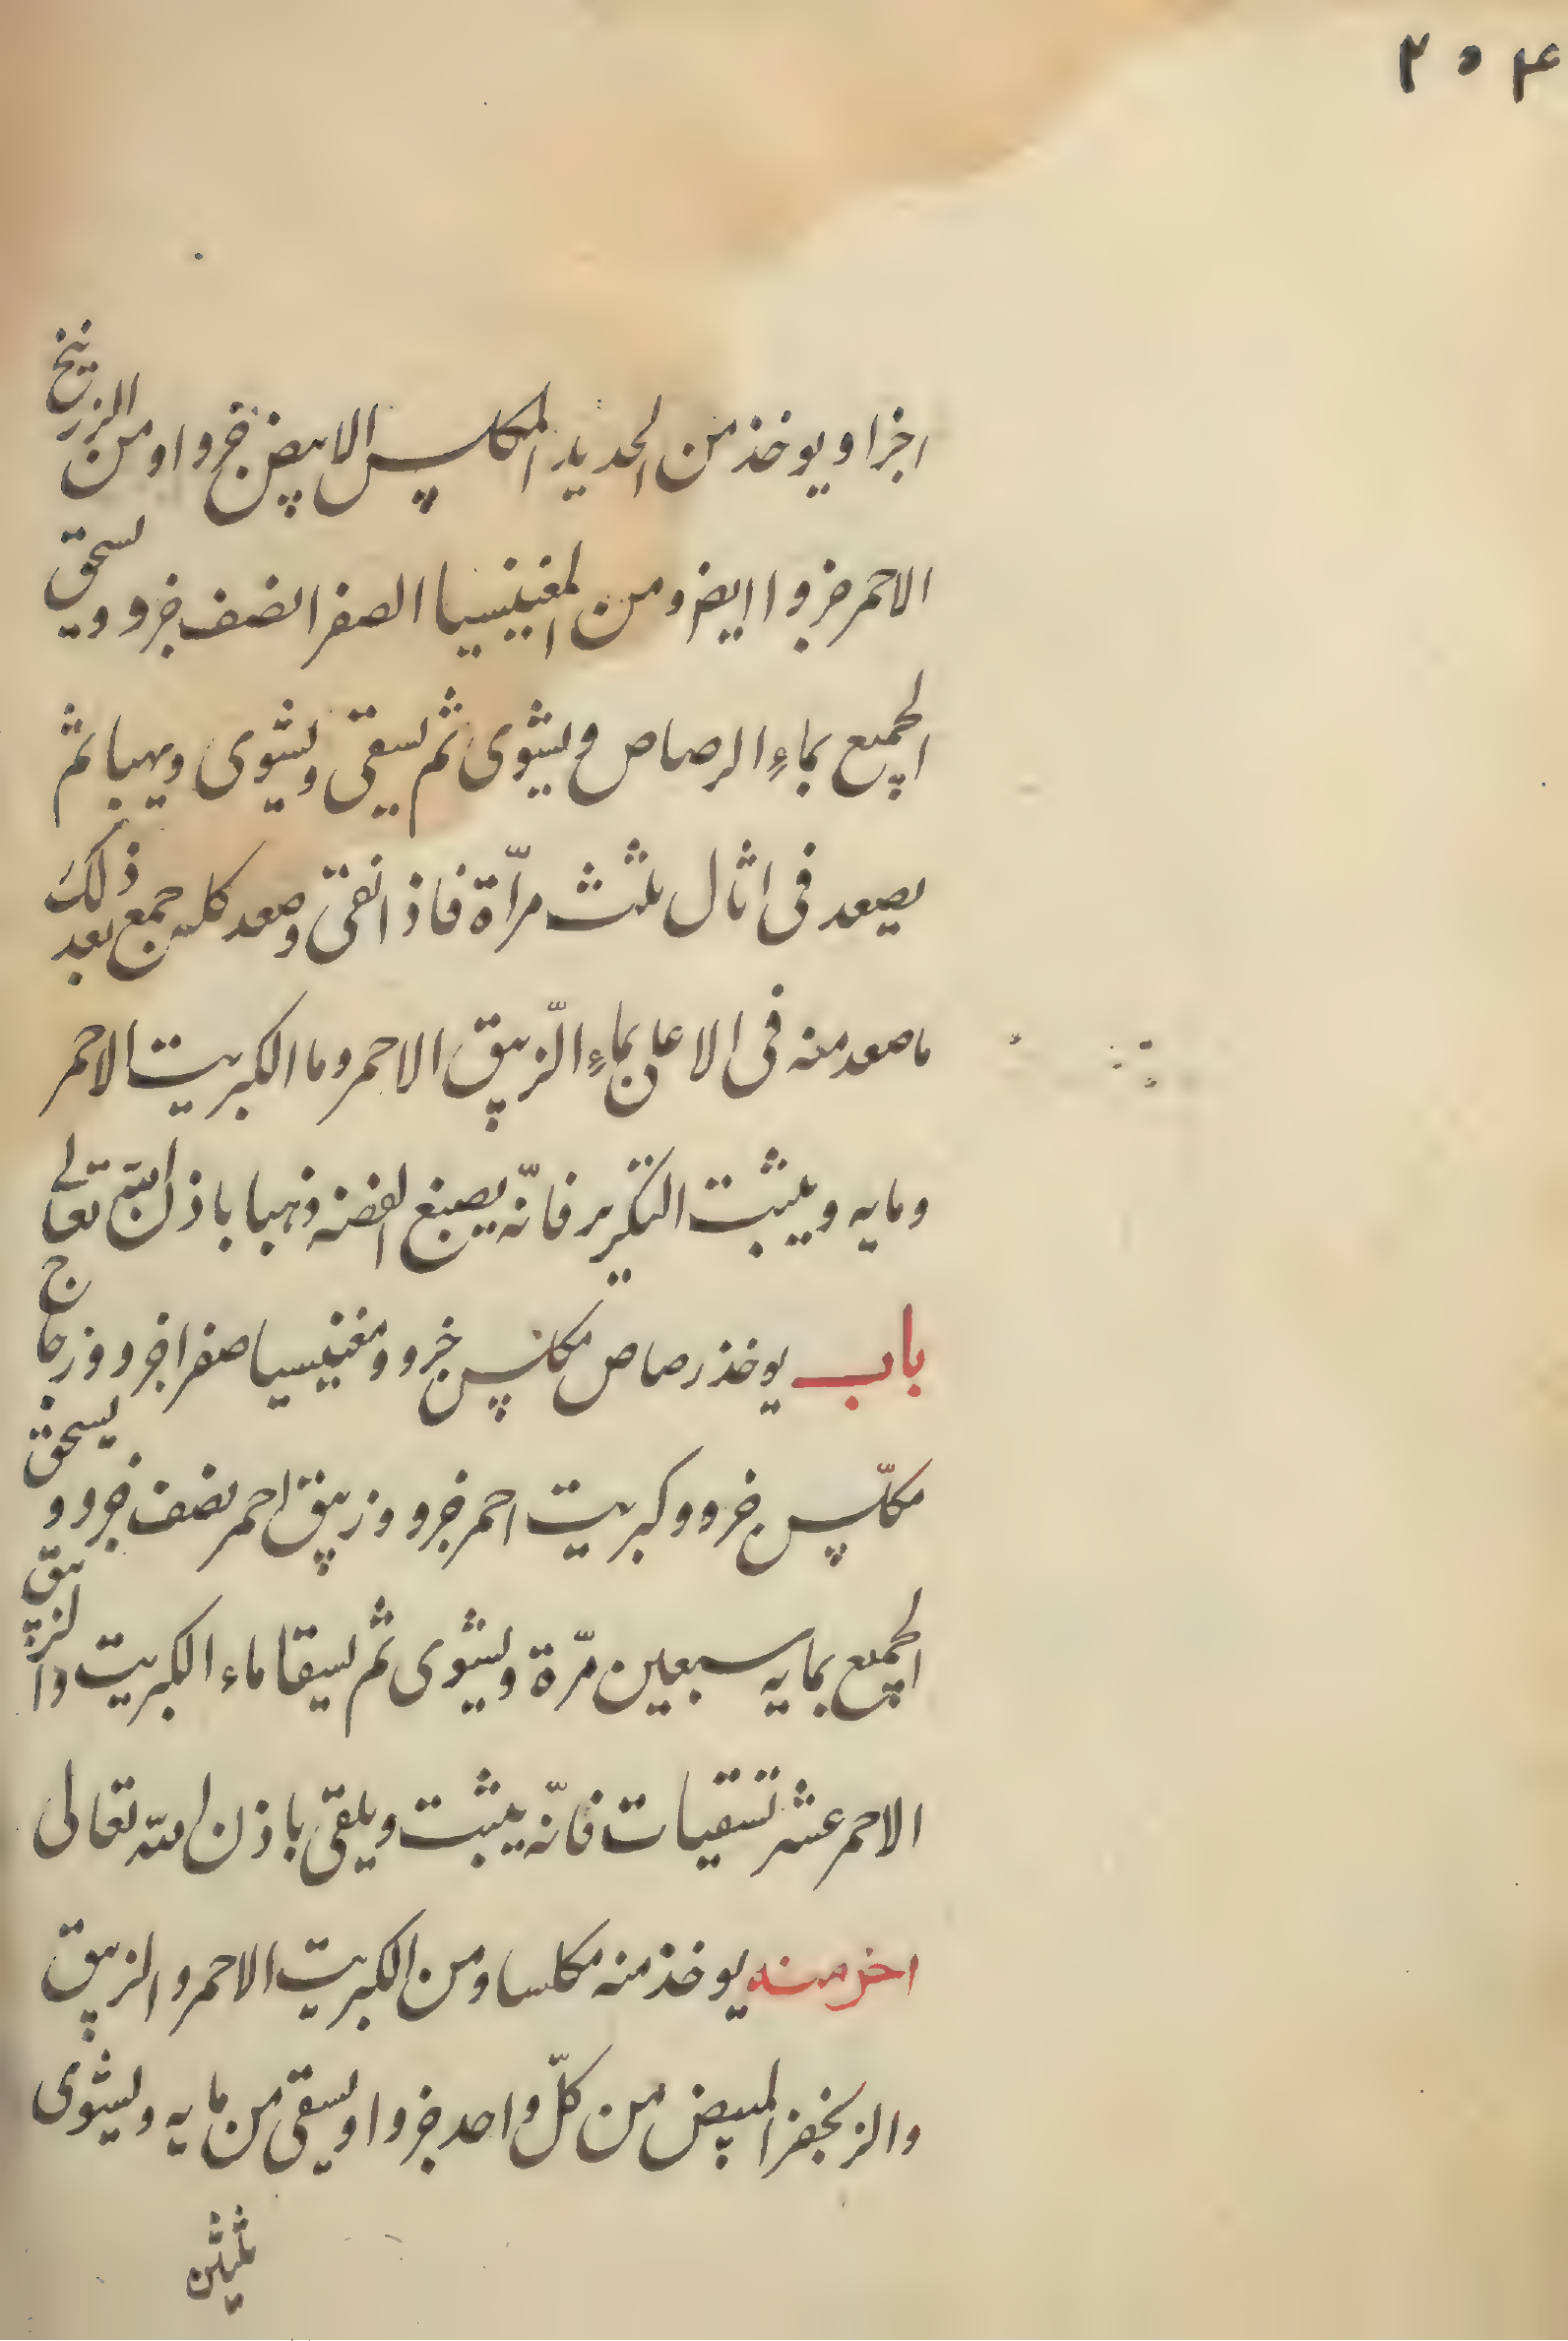 ٢٥٤
اجزا ويوخذ من الحديد المكلس الابيض جزوا ومن الزرنيخ
الاحمر جزوا ايضا ومن المغنيسيا الصفرا نصف جزو ويسحق
الجميع بماء الرصاص ويشوى ثم يسقى ويشوى ويهبا ثم
يصعد فى اثال ثلث مرّاة فاذا نقى وصعد كله جمع بعد ذلك
ما صعد منه فى الاعلى بماءِ الزّيبق الاحمر وما الكبريت الاحمر
ومايه ويثبت التكرير فانّه يصبغ الفضه ذهبا باذن الله تعالى
باب يوخذ رصاص مكلس جزو ومغنيسيا صفرا جزو وزجاج
مكلّس جزو وكبريت احمر جزو وزيبق احمر نصف جزو ويسحق
الجميع بمايه سبعين مرّة ويشوى ثم يسقا ماء الكبريت والزيبق
الاحمر عشر تسقيات فانّه يثبت ويلقى باذن الله تعالى
اخر منه يوخذ منه مكلسا ومن الكبريت الاحمر والزيبق
والزنجفر المبيض من كلّ واحد جزوا ويسقى من مايه ويشوى
ثلثين